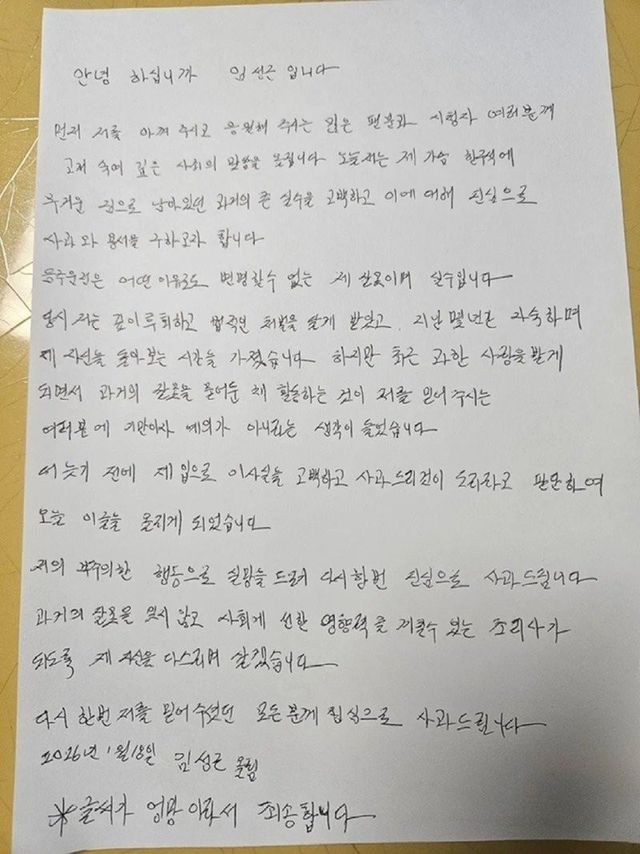 안녕 하십니까 임성근 입니다
먼저 저를 아껴 주시고 응원해 주시는 많은 팬분과 시청자 여러분께
고개 숙여 깊은 사죄의 말씀을 올립니다 오늘 저는 제 가슴 한구석에
무거운 짐으로 남아있던 과거의 큰 실수를 고백하고 이에 대해 진심으로
사과와 용서를 구하고자 합니다
음주운전은 어떤 이유로도 변명할수 없는 제 잘못이며 실수입니다
당시 저는 깊이 후회하고 법적인 처벌을 달게 받았고, 지난 몇년간 자숙하며
제 자신을 돌아보는 시간을 가졌습니다 하지만 최근 과한 사랑을 받게
되면서 과거의 잘못을 묻어둔 채 활동하는 것이 저를 믿어 주시는
여러분에 기만이자 예의가 아니라는 생각이 들었습니다
더 늦기 전에 제 입으로 이사실을 고백하고 사과 드리것이 도리라고 판단하여
오늘 이글을 올리게 되었습니다
저의 부주의한 행동으로 실망을 드려 다시한번 진심으로 사과드립니다
과거의 잘못을 잊지 않고 사회게 선한 영향력을 끼칠수 있는 조리사가
되도록 제 자신을 다스리며 살겠습니다
다시 한번 저를 믿어 주셨던 모든 분께 진심으로 사과드립니다
2026년 1월 18일 임성근 올림
※ 글씨가 엉망 이라서 죄송합니다